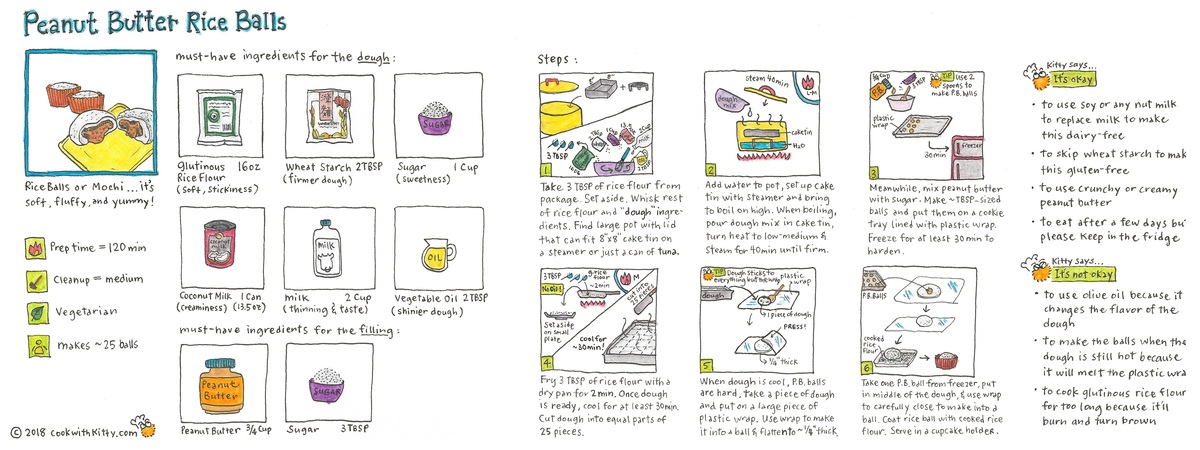 Peanut Butter Rice Balls
Rice Balls or Mochi...it's
soft, fluffy, and yummy!
Prep time = 120 min
Cleanup = medium
Vegetarian
makes ~25 balls
© 2018 cookwithkitty.com
must-have ingredients for the dough:
glutinous 16oz
Rice Flour
(soft, stickiness)
Wheat Starch 2TBSP
(firmer dough)
SUGAR
Sugar 1 Cup
(sweetness)
coconut milk
Coconut Milk 1 Can
(creaminess) (13.5oz)
MILK
milk 2 Cup
(thinning & taste)
OIL
Vegetable Oil 2TBSP
(shinier dough)
must-have ingredients for the filling:
Peanut
Butter
Peanut Butter 3/4 Cup
SUGAR
Sugar 3TBSP
Steps:
8"
8"
3 TBSP
1
Take 3 TBSP of rice flour from
package. Set aside. Whisk rest
of rice flour and "dough" ingre-
dients. Find large pot with lid
that can fit 8"x8" cake tin on
a steamer or just a can of tuna.
steam 40min
L-M
dough mix
caketin
H2O
2
Add water to pot, set up cake
tin with steamer and bring
to boil on high. When boiling,
pour dough mix in cake tin,
turn heat to low-medium &
Steam for 40min until firm.
3/4 Cup
P.B.
3TBSP
TIP use 2
spoons to
make P.B. balls
plastic
wrap
30 min
freezer
3
Meanwhile, mix peanut butter
with sugar. Make ~TBSP-sized
balls and put them on a cookie
tray lined with plastic wrap.
Freeze for at least 30min to
harden.
3TBSP
rice flour
~2min
M
No oil!
Set aside
on small
plate
cool for
~30min!
cut into
25 pieces
4
Fry 3 TBSP of rice flour with a
dry pan for 2min. Once dough
is ready, cool for at least 30min.
Cut dough into equal parts of
25 pieces.
TIP Dough sticks to
everything but the wrap!
plastic
wrap
dough
1 piece of dough
PRESS!
1/4" thick
5
When dough is cool, P.B. balls
are hard, take a piece of dough
and put on a large piece of
plastic wrap. Use wrap to make
it into a ball & flatten to ~1/4" thick.
P.B. Balls
cooked
rice
flour
6
Take one P.B. ball from freezer, put
in middle of the dough, & use wrap
to carefully close to make into a
ball. Coat rice ball with cooked rice
flour. Serve in a cupcake holder.
Kitty says...
It's okay
• to use soy or any nut milk
to replace milk to make
this dairy-free
• to skip wheat starch to mak
this gluten-free
• to use crunchy or creamy
peanut butter
• to eat after a few days bu
please keep in the fridge
Kitty says...
It's not okay
• to use olive oil because it
changes the flavor of the
dough
• to make the balls when the
dough is still hot because
it will melt the plastic wra
• to cook glutinous rice flour
for too long because it'll
burn and turn brown